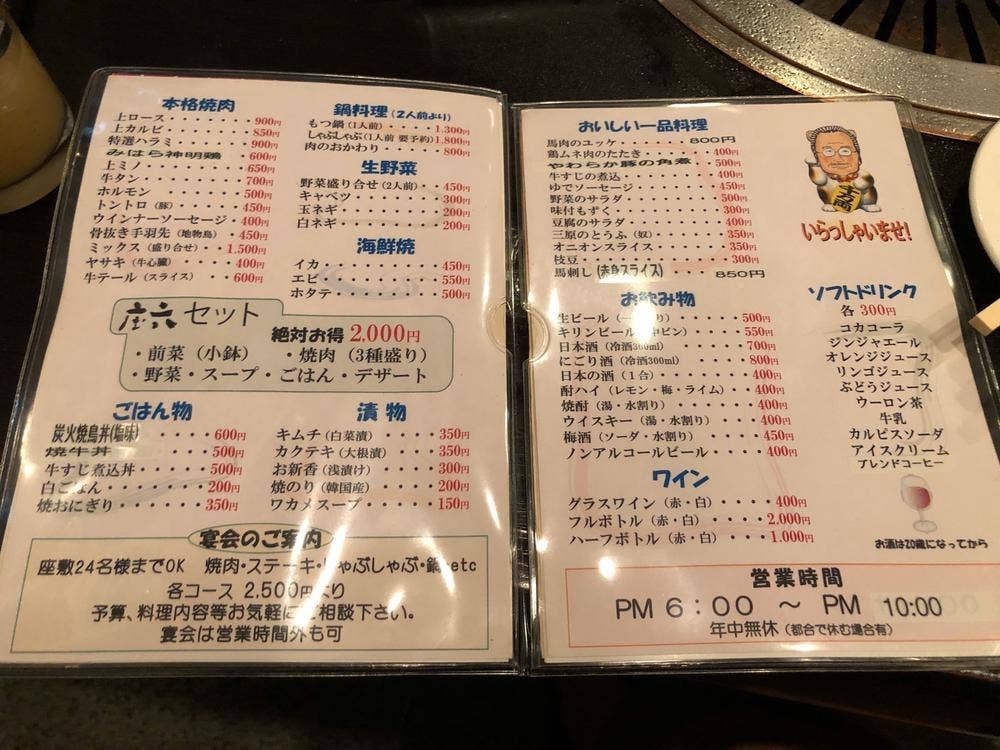 本格焼肉
上ロース・・・・・・・900円
上カルビ・・・・・・・850円
特選ハラミ・・・・・・900円
みはら神明鶏・・・・600円
上ミノ・・・・・・・・650円
牛タン・・・・・・・・700円
ホルモン・・・・・・・500円
トントロ(豚)・・・・・450円
ウインナーソーセージ・400円
骨抜き手羽先(地物鳥)・450円
ミックス(盛り合せ)・・1.500円
ヤサキ(牛心臓)・・・・400円
牛テール(スライス)・・600円
鍋料理(2人前より)
もつ鍋(1人前)・・・・1.300円
しゃぶしゃぶ(1人前 要予約)1.800円
肉のおかわり・・・・・800円
生野菜
野菜盛り合せ(2人前)・・450円
キャベツ・・・・・・・300円
玉ネギ・・・・・・・・200円
白ネギ・・・・・・・・200円
海鮮焼
イカ・・・・・・・・・450円
エビ・・・・・・・・・550円
ホタテ・・・・・・・・500円
庄六セット
絶対お得 2.000円
・前菜(小鉢) ・焼肉(3種盛り)
・野菜・スープ・ごはん・デザート
ごはん物
炭火焼鳥丼(塩味)・・・・600円
焼牛丼・・・・・・・・500円
牛すじ煮込丼・・・・・500円
白ごはん・・・・・・・200円
焼おにぎり・・・・・・350円
漬物
キムチ(白菜漬)・・・・350円
カクテキ(大根漬)・・・350円
お新香(浅漬け)・・・・300円
焼のり(韓国産)・・・・200円
ワカメスープ・・・・・150円
宴会のご案内
座敷24名様までOK 焼肉・ステーキ・しゃぶしゃぶ・鍋・etc
各コース 2.500円より
予算、料理内容等お気軽にご相談下さい。
宴会は営業時間外も可
おいしい一品料理
馬肉のユッケ・・・・・800円
鶏ムネ肉のたたき・・・・400円
やわらか豚の角煮・・・・500円
牛すじの煮込・・・・・・400円
ゆでソーセージ・・・・・450円
野菜のサラダ・・・・・・500円
味付もずく・・・・・・・300円
豆腐のサラダ・・・・・・400円
三原のとうふ(奴)・・・・350円
オニオンスライス・・・・350円
枝豆・・・・・・・・・・300円
馬刺し(赤身スライス)・・・850円
いらっしゃいませ!
お飲み物
生ビール・・・・・500円
キリンビール・・・・550円
日本酒(冷酒300ml)・・・・700円
にごり酒(冷酒300ml)・・・800円
日本の酒(1合)・・・・・・400円
酎ハイ(レモン・梅・ライム)・・400円
焼酎(湯・水割り)・・・・・400円
ウイスキー(湯・水割り)・・・400円
梅酒(ソーダ・水割り)・・・・450円
ノンアルコールビール・・・・400円
ワイン
グラスワイン(赤・白)・・・・400円
フルボトル(赤・白)・・・・2.000円
ハーフボトル(赤・白)・・・1.000円
ソフトドリンク
各 300円
コカコーラ
ジンジャエール
オレンジジュース
リンゴジュース
ぶどうジュース
ウーロン茶
牛乳
カルピスソーダ
アイスクリーム
ブレンドコーヒー
お酒は20歳になってから
営業時間
PM 6:00 〜 PM 10:00
年中無休(都合で休む場合有)